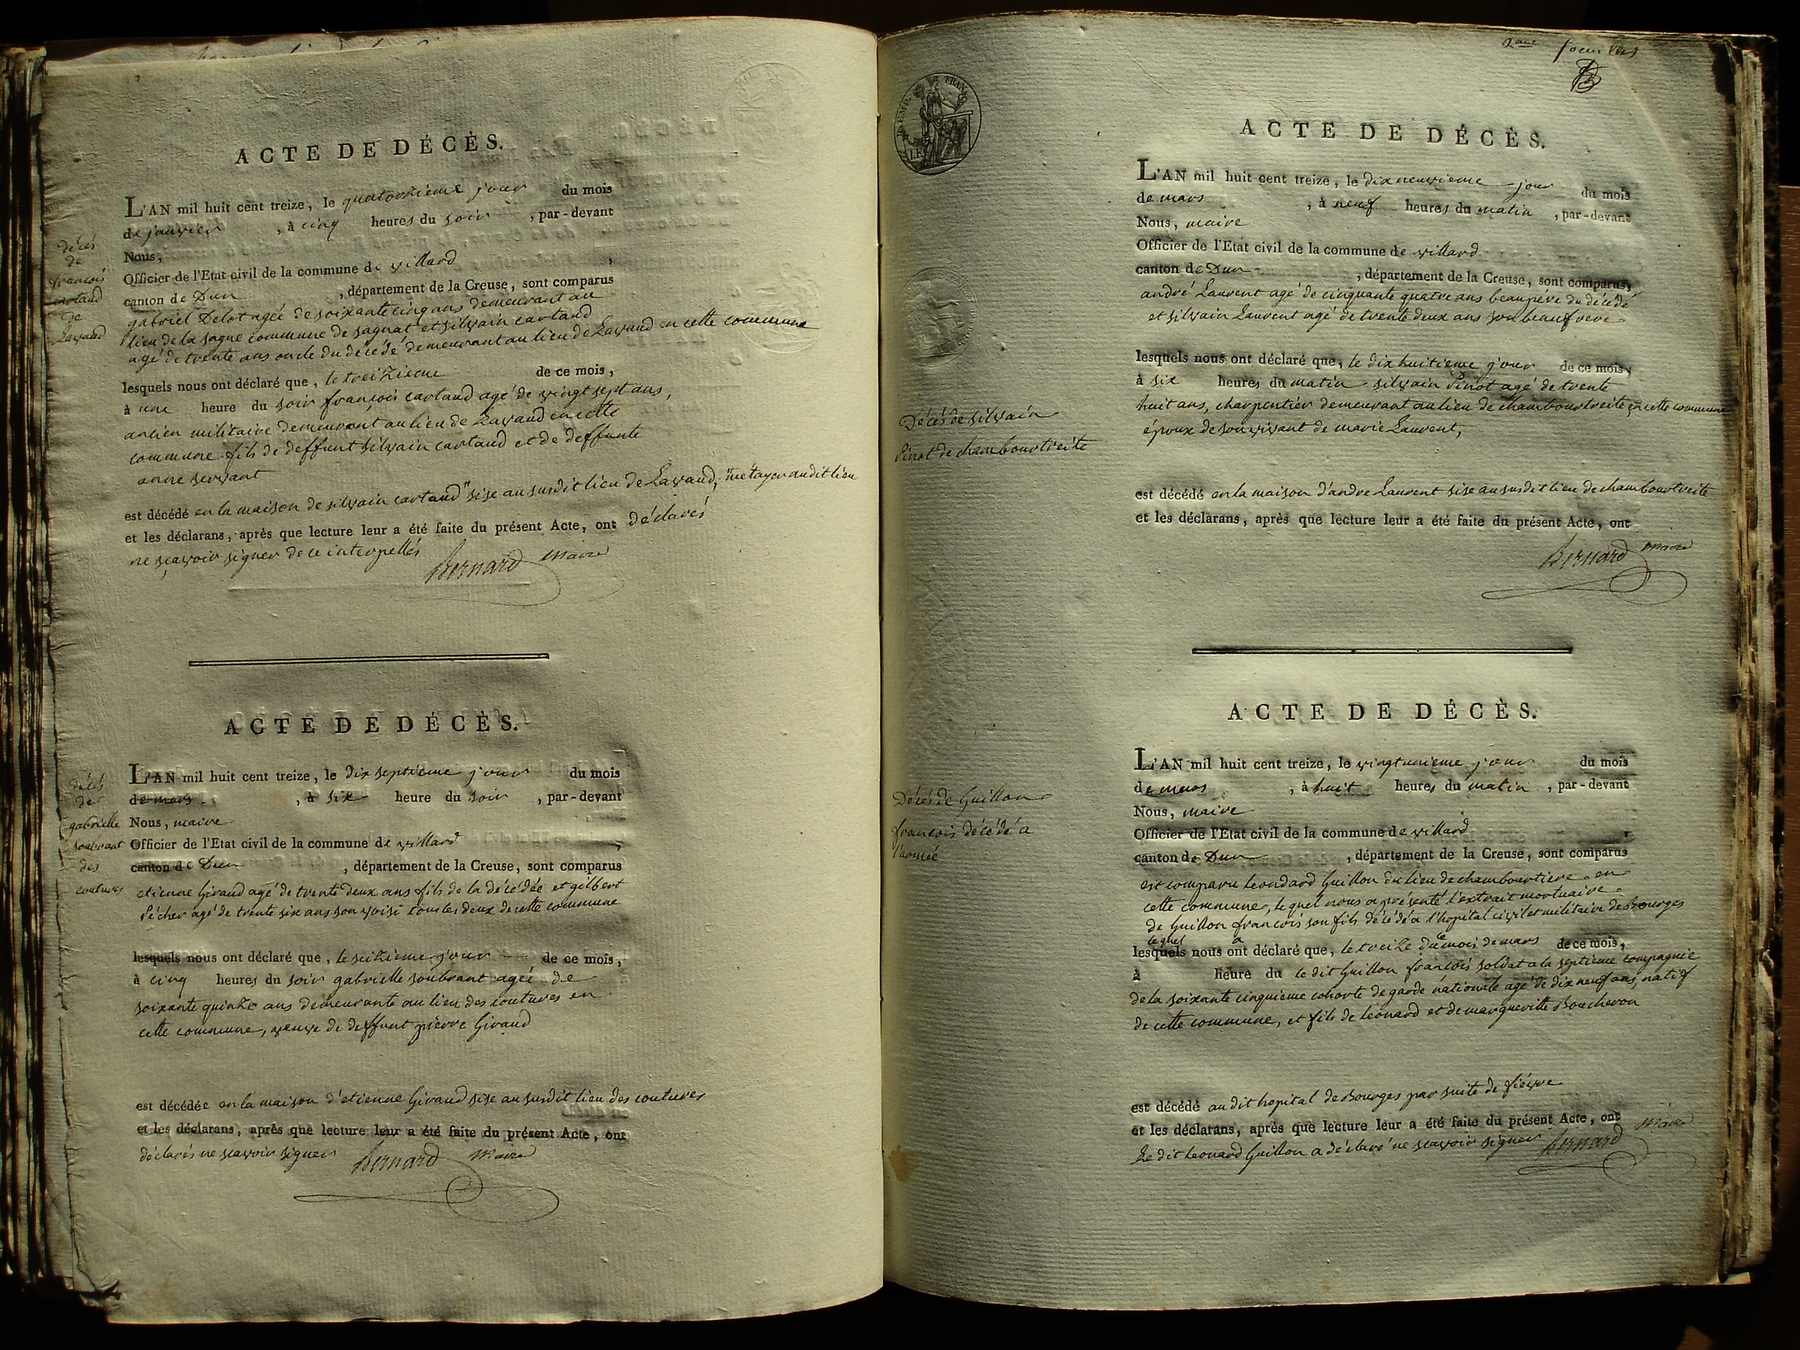 ACTE DE DÉCÈS.
L'AN mil huit cent treize, le quatorzieme jour du mois
de janvier, à cinq heures du soir, par-devant
Nous,
Officier de l'Etat civil de la commune de villard
canton de Dun, département de la Creuse, sont comparus
gabriel Delot agé de soixante cinq ans demeurant au
lieu de la sagne commune de sagnat et silvain cartaud
agé de trente ans oncle du décédé demeurant au lieu de Lavaud en cette commune
lesquels nous ont déclaré que, le treizieme de ce mois,
à une heure du soir françois cartaud agé de vingt sept ans,
ancien militaire demeurant au lieu de Lavaud en cette
commune fils de deffunt silvain cartaud et de deffunte
anne servant
est décédé en la maison de silvain cartaud sise au susdit lieu de Lavaud, metayer audit lieu
et les déclarans, après que lecture leur a été faite du présent Acte, ont déclarés
ne sçavoir signer de ce interpellés
Bernard maire
décés
de
françois
cartaud
de
Lavaud
ACTE DE DÉCÈS.
L'AN mil huit cent treize, le dix septieme jour du mois
de mars, à six heure du soir, par-devant
Nous, maire
Officier de l'Etat civil de la commune de villard
canton de Dun, département de la Creuse, sont comparus
etienne Giraud agé de trente deux ans fils de la décédée et gilbert
Pécher agé de trente six ans son voisi tous les deux de cette commune
lesquels nous ont déclaré que, le seizieme jour de ce mois,
à cinq heures du soir gabrielle soubrant agée de
soixante quinze ans demeurante au lieu des coutures en
cette commune, veuve de deffunt pierre Giraud
est décédée en la maison d'etienne Giraud sise au susdit lieu des coutures
et les déclarans, après que lecture leur a été faite du présent Acte, ont
déclarés ne sçavoir signer Bernard maire
décés
de
gabrielle
soubrant
des
coutures
2eme feuillet
ACTE DE DÉCÈS.
L'AN mil huit cent treize, le dixneuvieme jour du mois
de mars, à neuf heures du matin, par-devant
Nous, maire
Officier de l'Etat civil de la commune de villard
canton de Dun, département de la Creuse, sont comparus,
andré Laurent agé de cinquante quatre ans beaupére du décédé
et silvain Laurent agé de trente deux ans son beaufrere
lesquels nous ont déclaré que, le dixhuitieme jour de ce mois,
à six heures du matin silvain Pinot agé de trente
huit ans, charpentier demeurant au lieu de chambourtreite en cette commune
époux de son vivant de marie Laurent,
est décédé en la maison d'andre Laurent sise au susdit lieu de chambourtreite
et les déclarans, après que lecture leur a été faite du présent Acte, ont
Bernard maire
Décés de silvain
Pinot de chambourtreite
ACTE DE DÉCÈS.
L'AN mil huit cent treize, le vingtunieme jour du mois
de mars, à huit heures du matin, par-devant
Nous, maire
Officier de l'Etat civil de la commune de villard
canton de Dun, département de la Creuse, sont comparus
est comparu leondard Guillon du lieu de chambourtiere en
cette commune, lequel nous a présenté l'extrait mortuaire
de Guillon francois son fils décédé a l'hopital civil et militaire de Bourges
lequel a
lesquels nous ont déclaré que, le treize du mois de mars de ce mois,
à heure du le dit Guillon françois soldat a la septieme compagnie
de la soixante cinquieme cohorte de garde nationale agé de dix neuf ans, natif
de cette commune, et fils de leonard et de margueritte Boucheron
est décédé au dit hopital de Bourges par suite de fiévre
et les déclarans, après que lecture leur a été faite du présent Acte, ont
Le dit leonard Guillon a déclaré ne sçavoir signer Bernard maire
Décés de Guillon
francois décédé a
l'armée